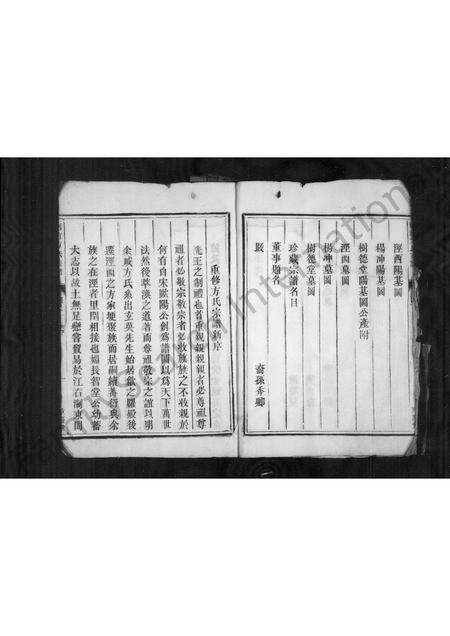 涇西陽基圖
楊冲陽基圖
樹德堂陽基圖公產附
涇西墓圖
楊冲墓圖
樹德堂墓圖
珍藏宗譜名目
董事題名
跋
裔孫秀卿
重修方氏宗譜新序
先王之制禮也首重親親親者必尊祖尊
祖者必敬宗敬宗者必收族族之不收親於
何有自宋歐陽公創爲譜圖以爲天下萬世
法然後萃渙之道著而尊祖敬宗之誼以明
余戚方氏系出玄英先生始居歙之
遷涇西之方家埂聚族而居嗣續蕃衍與余
族之在涇者里閈相接也
大志以故土無足戀嘗貿易於江右